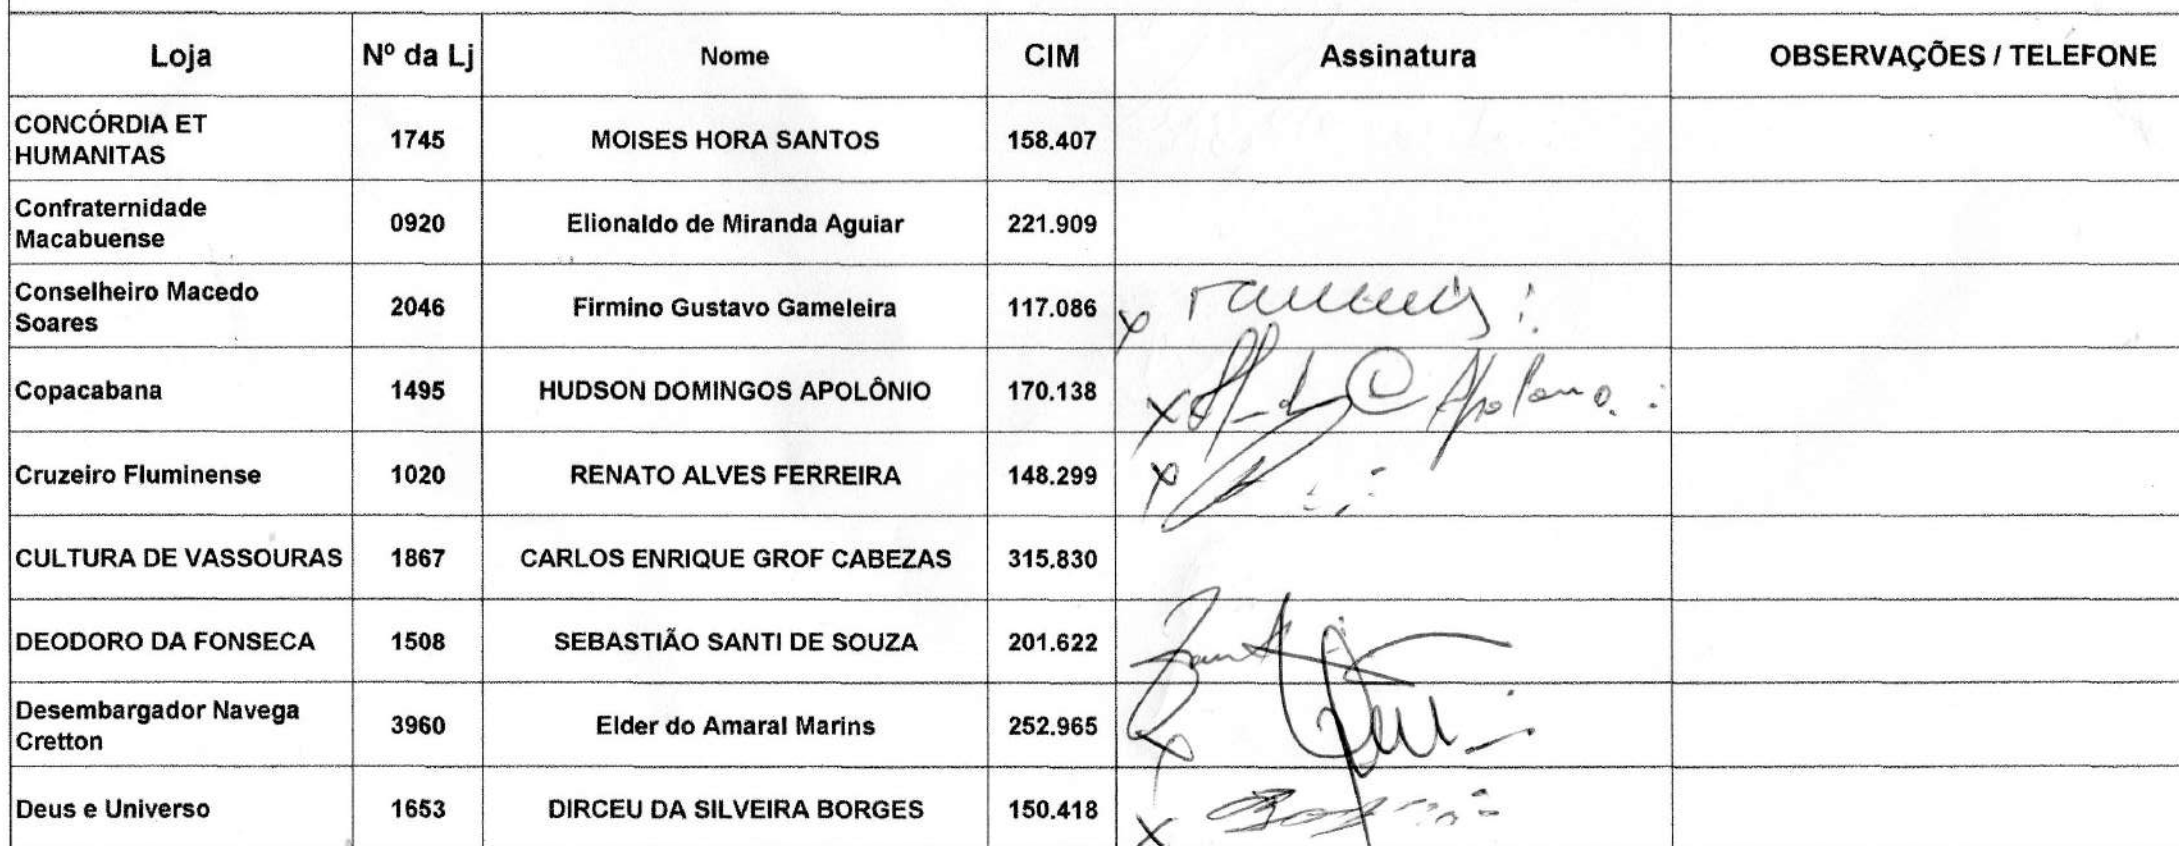 Loja Nº da Lj Nome CIM Assinatura OBSERVAÇÕES / TELEFONE
CONCÓRDIA ET
HUMANITAS 1745 MOISES HORA SANTOS 158.407
Confraternidade
Macabuense 0920 Elionaldo de Miranda Aguiar 221.909
Conselheiro Macedo
Soares 2046 Firmino Gustavo Gameleira 117.086 x
Copacabana 1495 HUDSON DOMINGOS APOLÔNIO 170.138 x
Cruzeiro Fluminense 1020 RENATO ALVES FERREIRA 148.299 x
CULTURA DE VASSOURAS 1867 CARLOS ENRIQUE GROF CABEZAS 315.830
DEODORO DA FONSECA 1508 SEBASTIÃO SANTI DE SOUZA 201.622
Desembargador Navega
Cretton 3960 Elder do Amaral Marins 252.965 x
Deus e Universo 1653 DIRCEU DA SILVEIRA BORGES 150.418 x